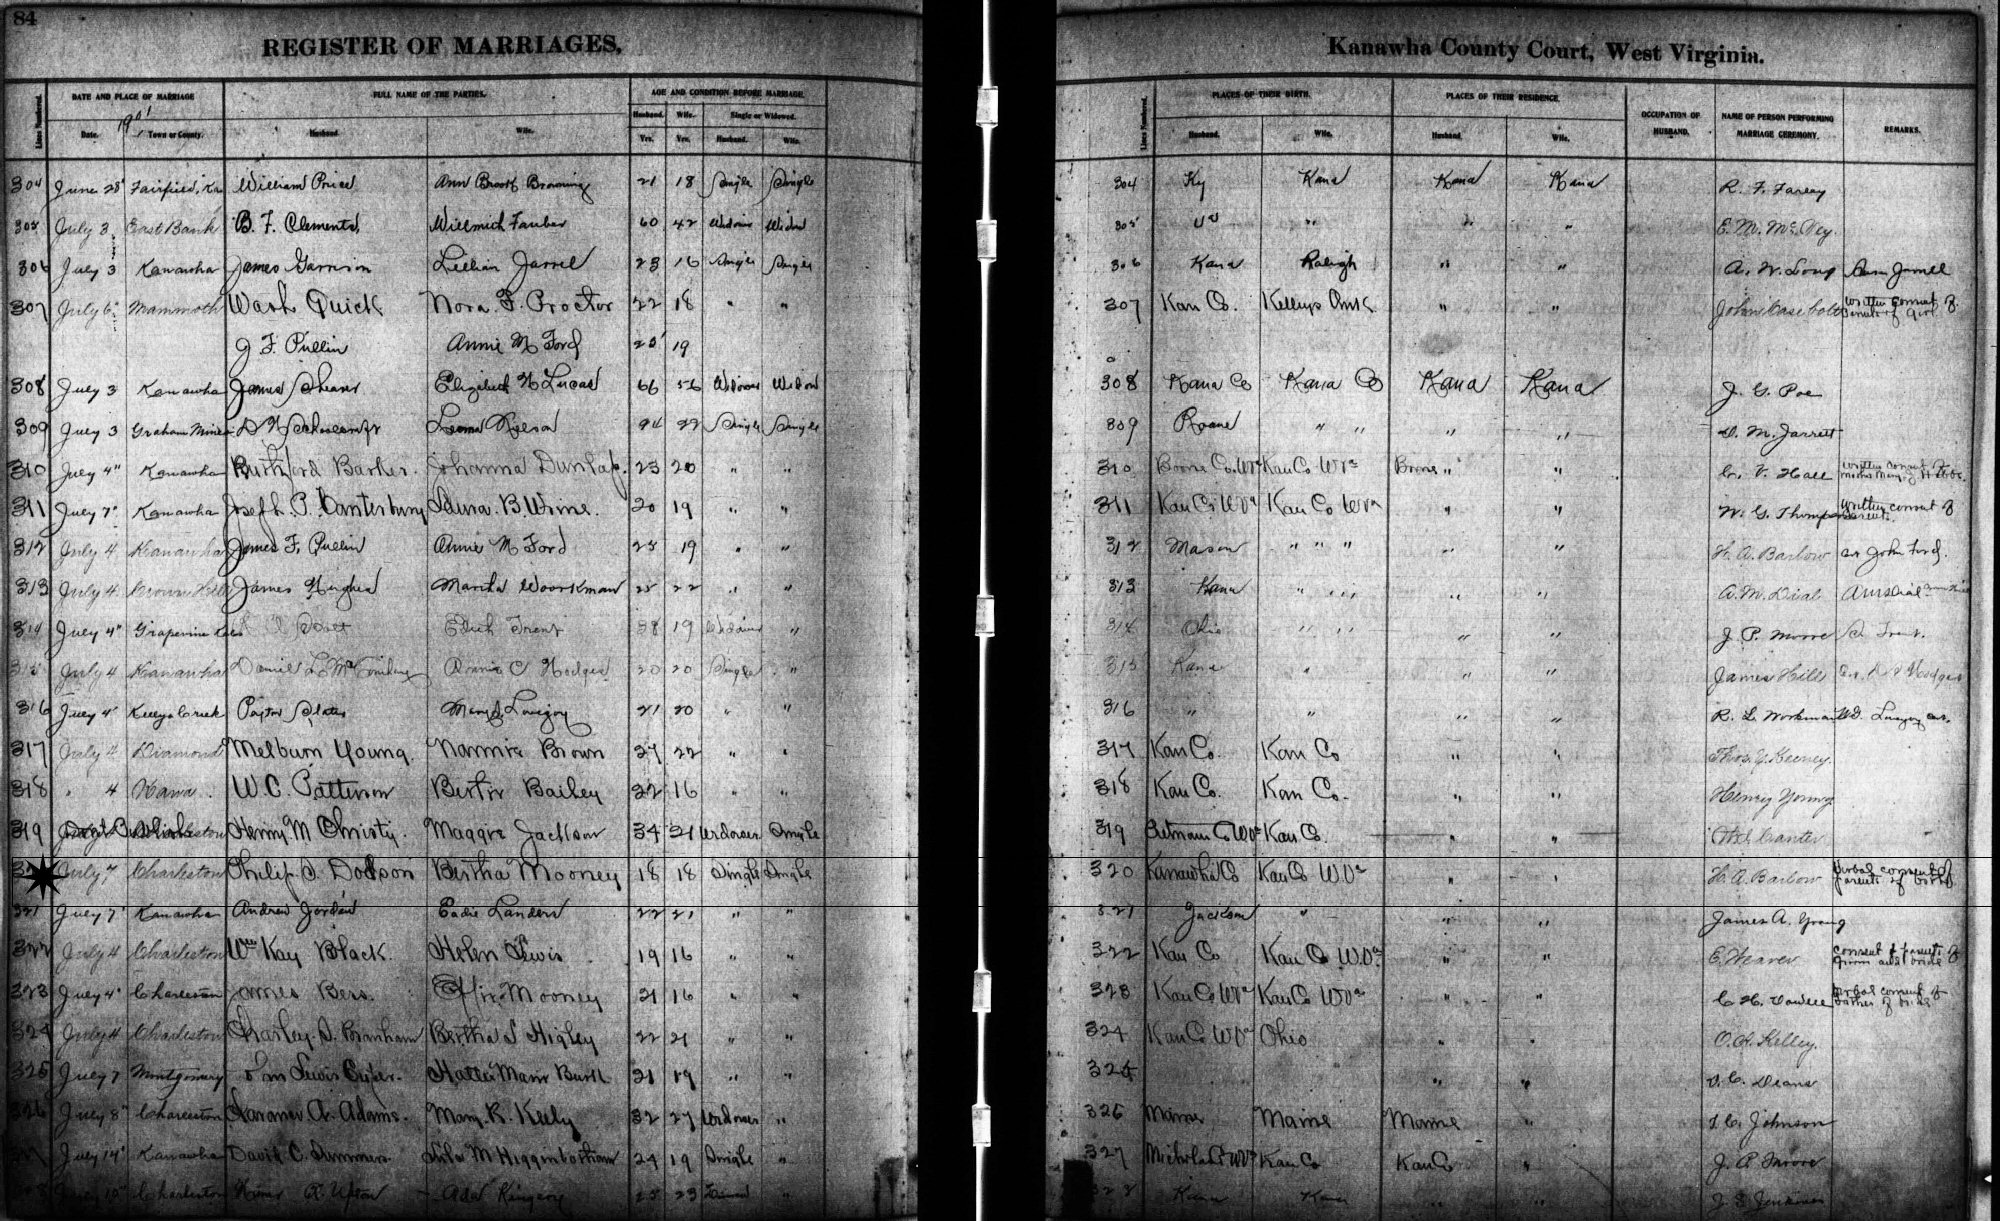 84
REGISTER OF MARRIAGES.
Kanawha County Court, West Virginia.
Lines Numbered. DATE AND PLACE OF MARRIAGE FULL NAME OF THE PARTIES. AGE AND CONDITION BEFORE MARRIAGE.
Husband. Wife. Single or Widowed.
Date. 1901 Town or County. Husband. Wife. Yrs. Yrs. Husband. Wife.
Lines Numbered. PLACES OF THEIR BIRTH. PLACES OF THEIR RESIDENCE. OCCUPATION OF HUSBAND. NAME OF PERSON PERFORMING MARRIAGE CEREMONY. REMARKS.
Husband. Wife. Husband. Wife.
304 June 28" Fairfield, Ka William Price Ann Brook Browning 21 18 Single Single
305 July 3 East Bank B. F. Clements Fauber 60 42 Widower Widow
306 July 3 Kanawha James Garrison Lillian Jarrel 23 16 Single Single
307 July 6" Mammoth Wash Quick Nora. F. Proctor 22 18 " "
J F. Pullin Annie M Ford 25 19
308 July 3 Kanawha James Shearer Elizabeth Lucas 66 56 Widower Widow
309 July 3 Graham Mines D 24 22 Single Single
310 July 4" Kanawha Ruthford Barker. Johanna Dunlap. 23 20 " "
311 July 7" Kanawha Joseph. P. Canterbury Laura. B. 20 19 " "
312 July 4 Kanawha James F. Pullin Annie M Ford 25 19 " "
313 July 4 Crown Hill James Hughes Martha Woorkman 25 22 " "
314 July 4" Grapevine Edith Trent 38 19 Widower "
315 July 4 Kanawha Daniel L. C Hodges 20 20 Single "
316 July 4" Kellys Creek Payton Slater Mary Lovejoy 21 20 " "
317 July 4 Diamond Melburn Young. Nannie Brown 27 22 " "
318 " 4 Kana. W. C. Patterson Bertie Bailey 22 16 " "
319 Don't Publish Charleston Henry. M Christy. Maggie Jackson 34 21 Widower Single
320 July 7 Charleston Philip. S. Dodson Bertha Mooney 18 18 Single Single
321 July 7" Kanawha Andrew Jordan Eadie Landers 22 21 " "
322 July 4 Charleston Wm Kay Black. Helen Lewis 19 16 " "
323 July 4" Charleston James Bess. Effie Mooney 21 16 " "
324 July 4 Charleston Charley. S. Branham Bertha S Higley 22 21 " "
325 July 7 Montgomery Lewis Hattie Burk 21 19 " "
326 July 8" Charleston A. Adams. Mary. R. Kelly 32 27 Widower "
327 July 14" Kanawha David C. Summers Lula M Higginbotham 24 19 Single "
Charleston R. Upton Ada Kingery 25 23 "
304 Ky Kana Kana Kana R. F. Farley
305 Va " " " E. M. McVey.
306 Kana Raleigh " " A. W. Long Jarrell
307 Kan Co. Kellys Creek " " John Casebolt written consent of parents of girl
308 Kana Co Kana Co Kana Kana J. G. Poe
309 Roane " " " " D. M. Jarrett
310 Boone Co. W Va Kan Co W Va Boone " " C. V. Hall written consent of mother
311 Kan Co W Va Kan Co W Va " " W. G. Thompson written consent of parents.
312 Mason " " " " " H. A. Barlow John Ford.
313 Kana " " " " A. M. Dial
314 Ohio " " " " J. P. Moore Trent.
315 Kana " " " James Hill Hodges
316 " " " " R. L. Workman Lovejoy
317 Kan Co. Kan Co " " Thos. Y. Keeney.
318 Kan Co. Kan Co. " " Henry Young
319 Putnam Co W Va Kan Co. " " Canter
320 Kanawha Co Kan Co W. Va " " H. A. Barlow verbal consent of parents of both
321 Jackson " " " James A. Young
322 Kan Co Kan Co W. Va " " E. Weaver consent of parents of groom and bride
323 Kan Co W Va Kan Co W Va " " C. H. verbal consent of father of bride
324 Kan Co W Va Ohio " " Kelley.
325 " " Deans
326 Maine Maine Maine " Johnson
327 Nicholas Co W Va Kan Co Kan Co " J. P. Moore
328 Kana Kana " "